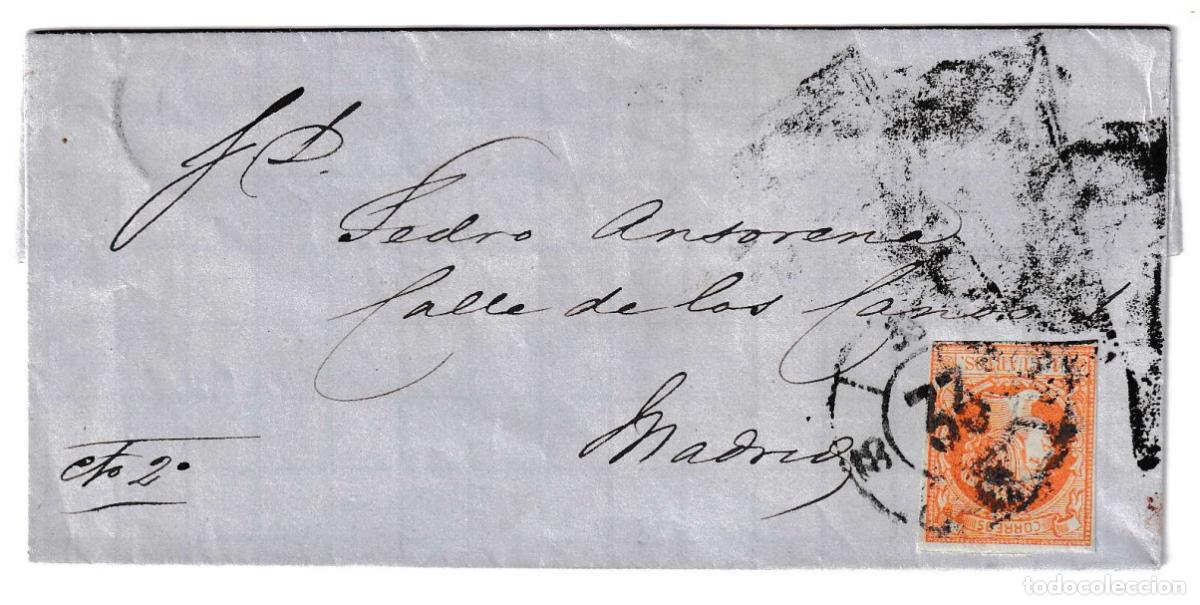 S D.
Pedro Ansorena
Calle de los Canos 1
Madrid
cto 2º
33
CORREOS
todocoleccion